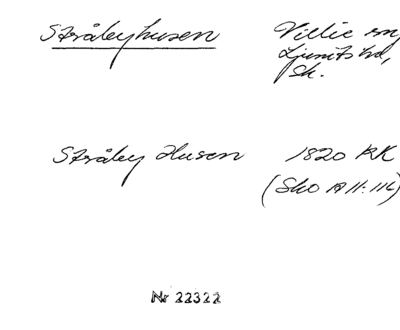 Stråleyhusen Villie sn,
Ljunits hd,
Sk.
Stråley Husen 1820 RK
(Sko A II:116)
Nr 22322